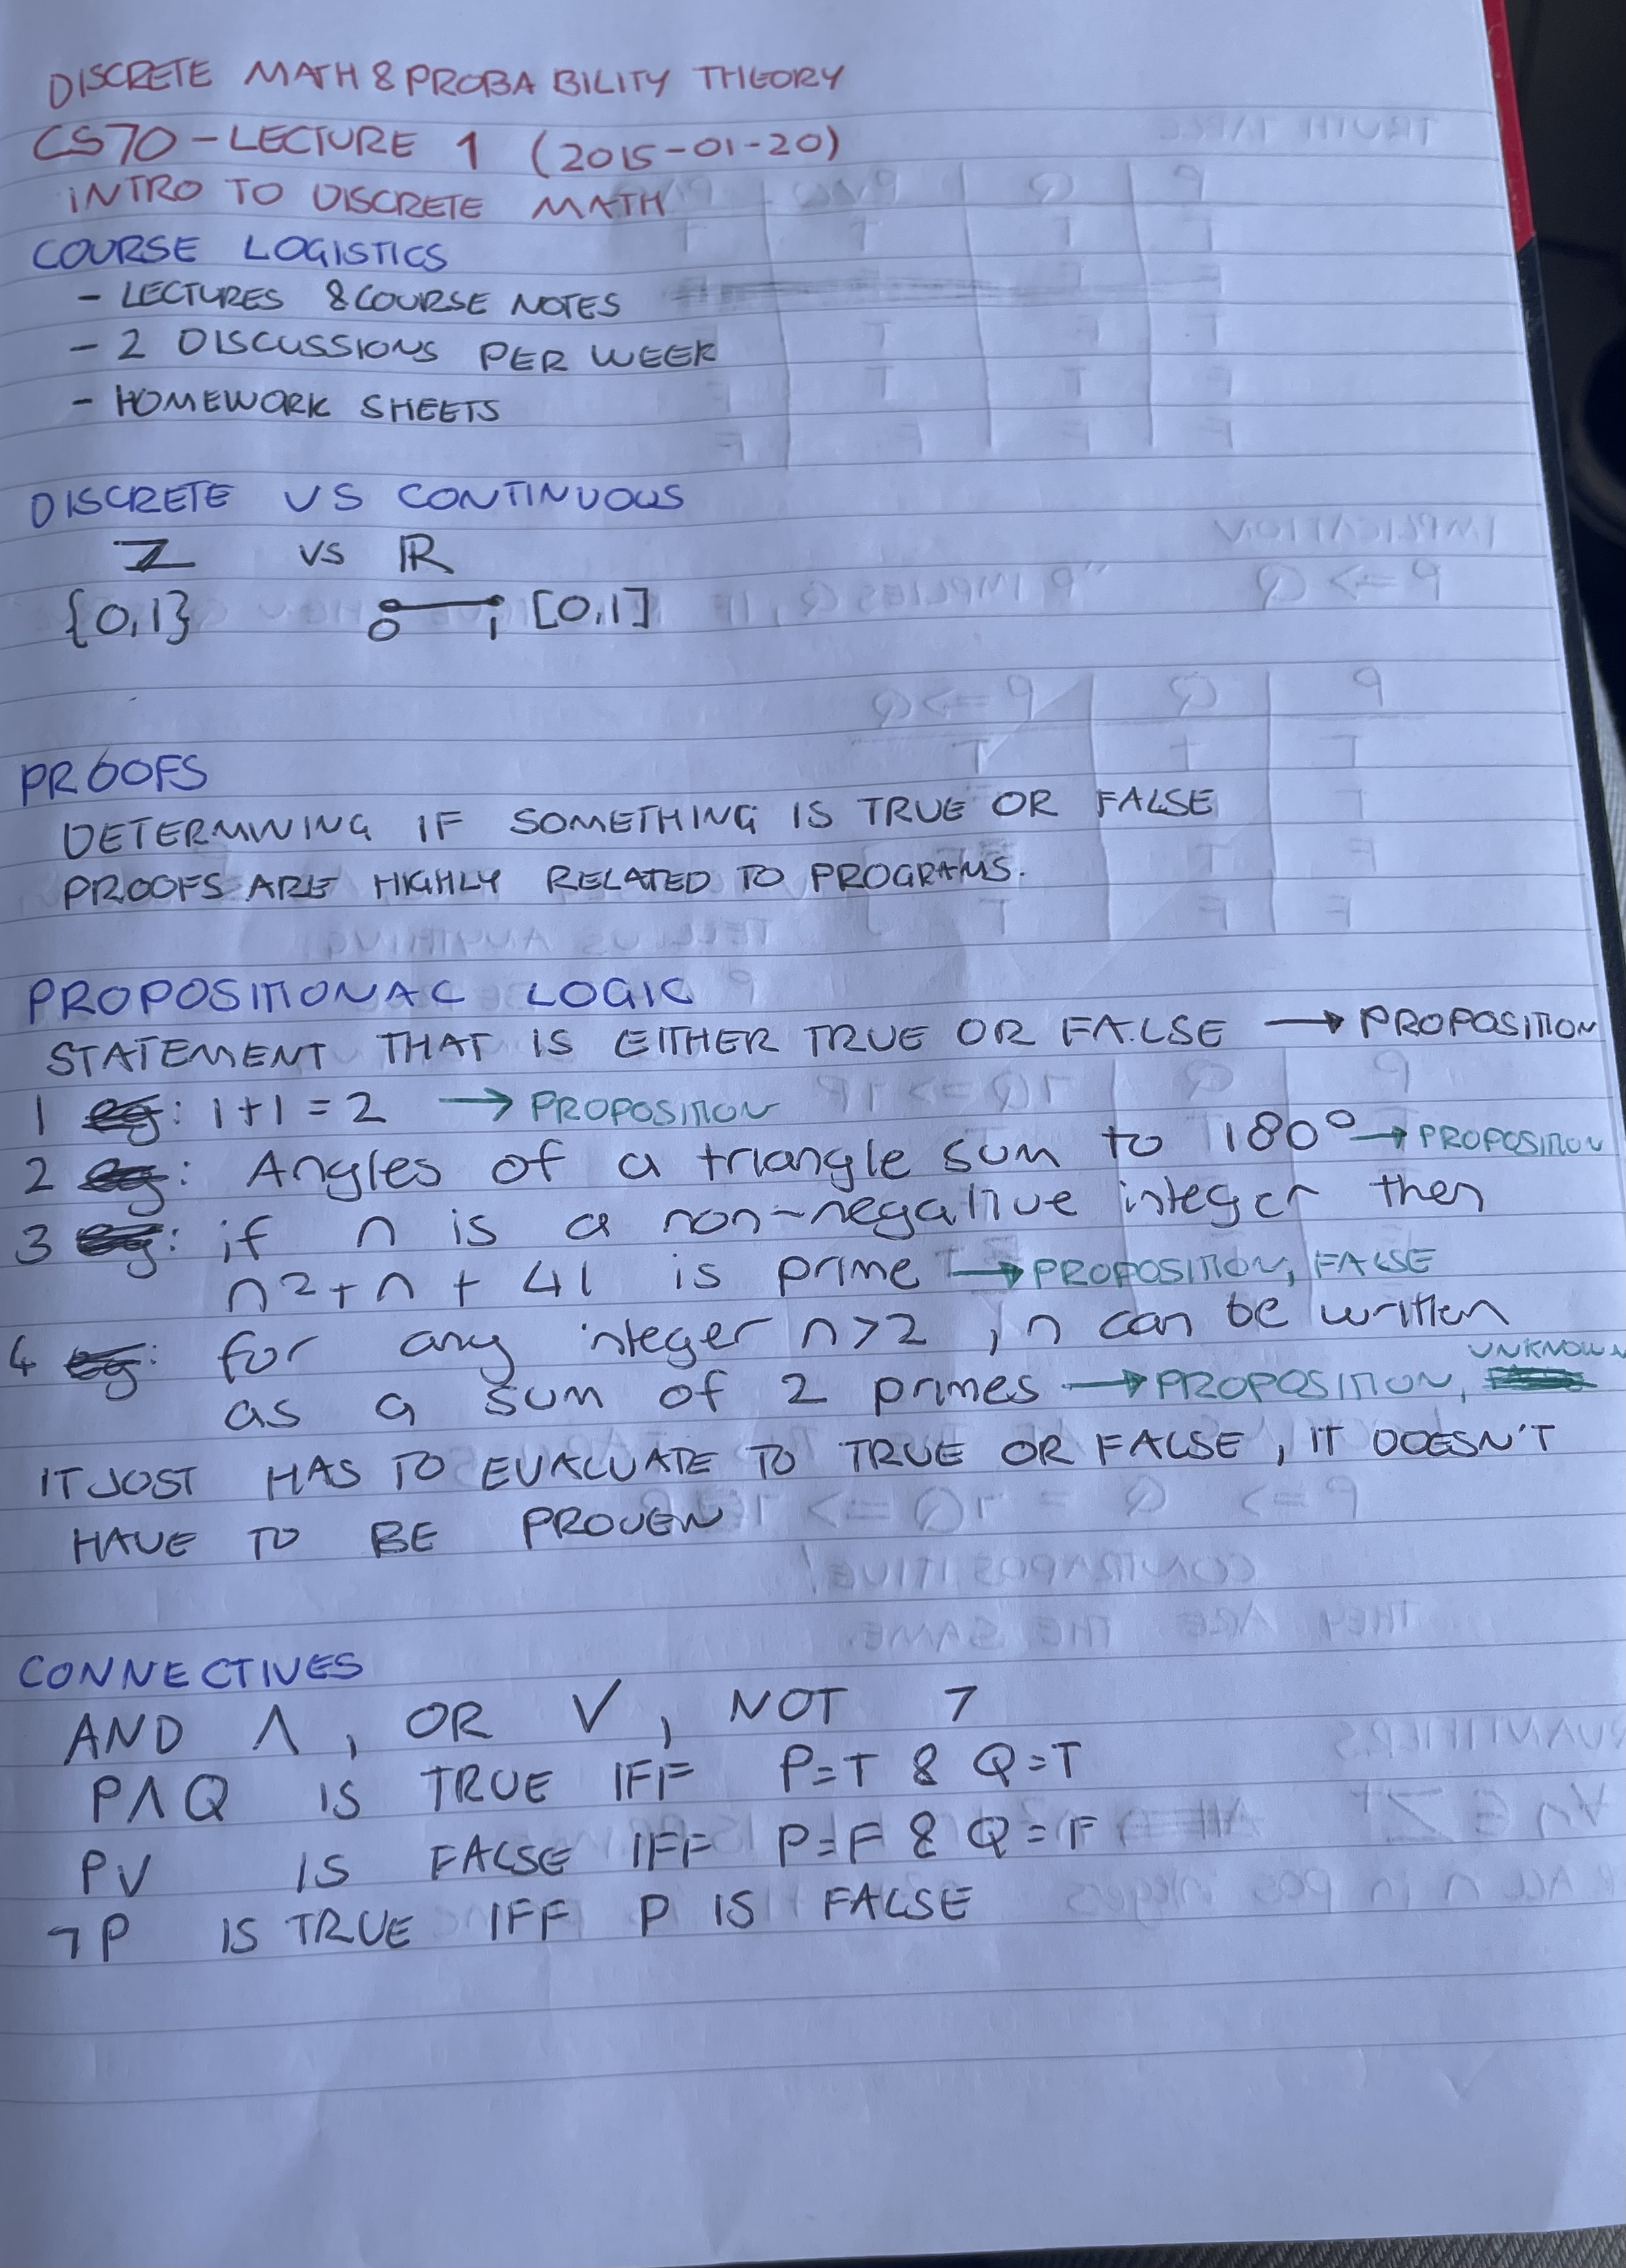 DISCRETE MATH & PROBABILITY THEORY
CS70 - LECTURE 1 (2015-01-20)
INTRO TO DISCRETE MATH
COURSE LOGISTICS
- LECTURES & COURSE NOTES
- 2 DISCUSSIONS PER WEEK
- HOMEWORK SHEETS
DISCRETE VS CONTINUOUS
ℤ VS ℝ
{0,1} 0 1 [0,1]
PROOFS
DETERMINING IF SOMETHING IS TRUE OR FALSE
PROOFS ARE HIGHLY RELATED TO PROGRAMS.
PROPOSITIONAL LOGIC
STATEMENT THAT IS EITHER TRUE OR FALSE → PROPOSITION
1 eg: 1+1=2 → PROPOSITION
2 eg: Angles of a triangle sum to 180° → PROPOSITION
3 eg: if n is a non-negative integer then
n2+n + 41 is prime → PROPOSITION, FALSE
4 eg: for any integer n>2, n can be written
as a sum of 2 primes → PROPOSITION, UNKNOWN
IT JUST HAS TO EVALUATE TO TRUE OR FALSE, IT DOESN'T
HAVE TO BE PROVEN
CONNECTIVES
AND ∧, OR ∨, NOT ¬
P∧Q IS TRUE IFF P=T & Q=T
P∨ IS FALSE IFF P=F & Q=F
¬P IS TRUE IFF P IS FALSE